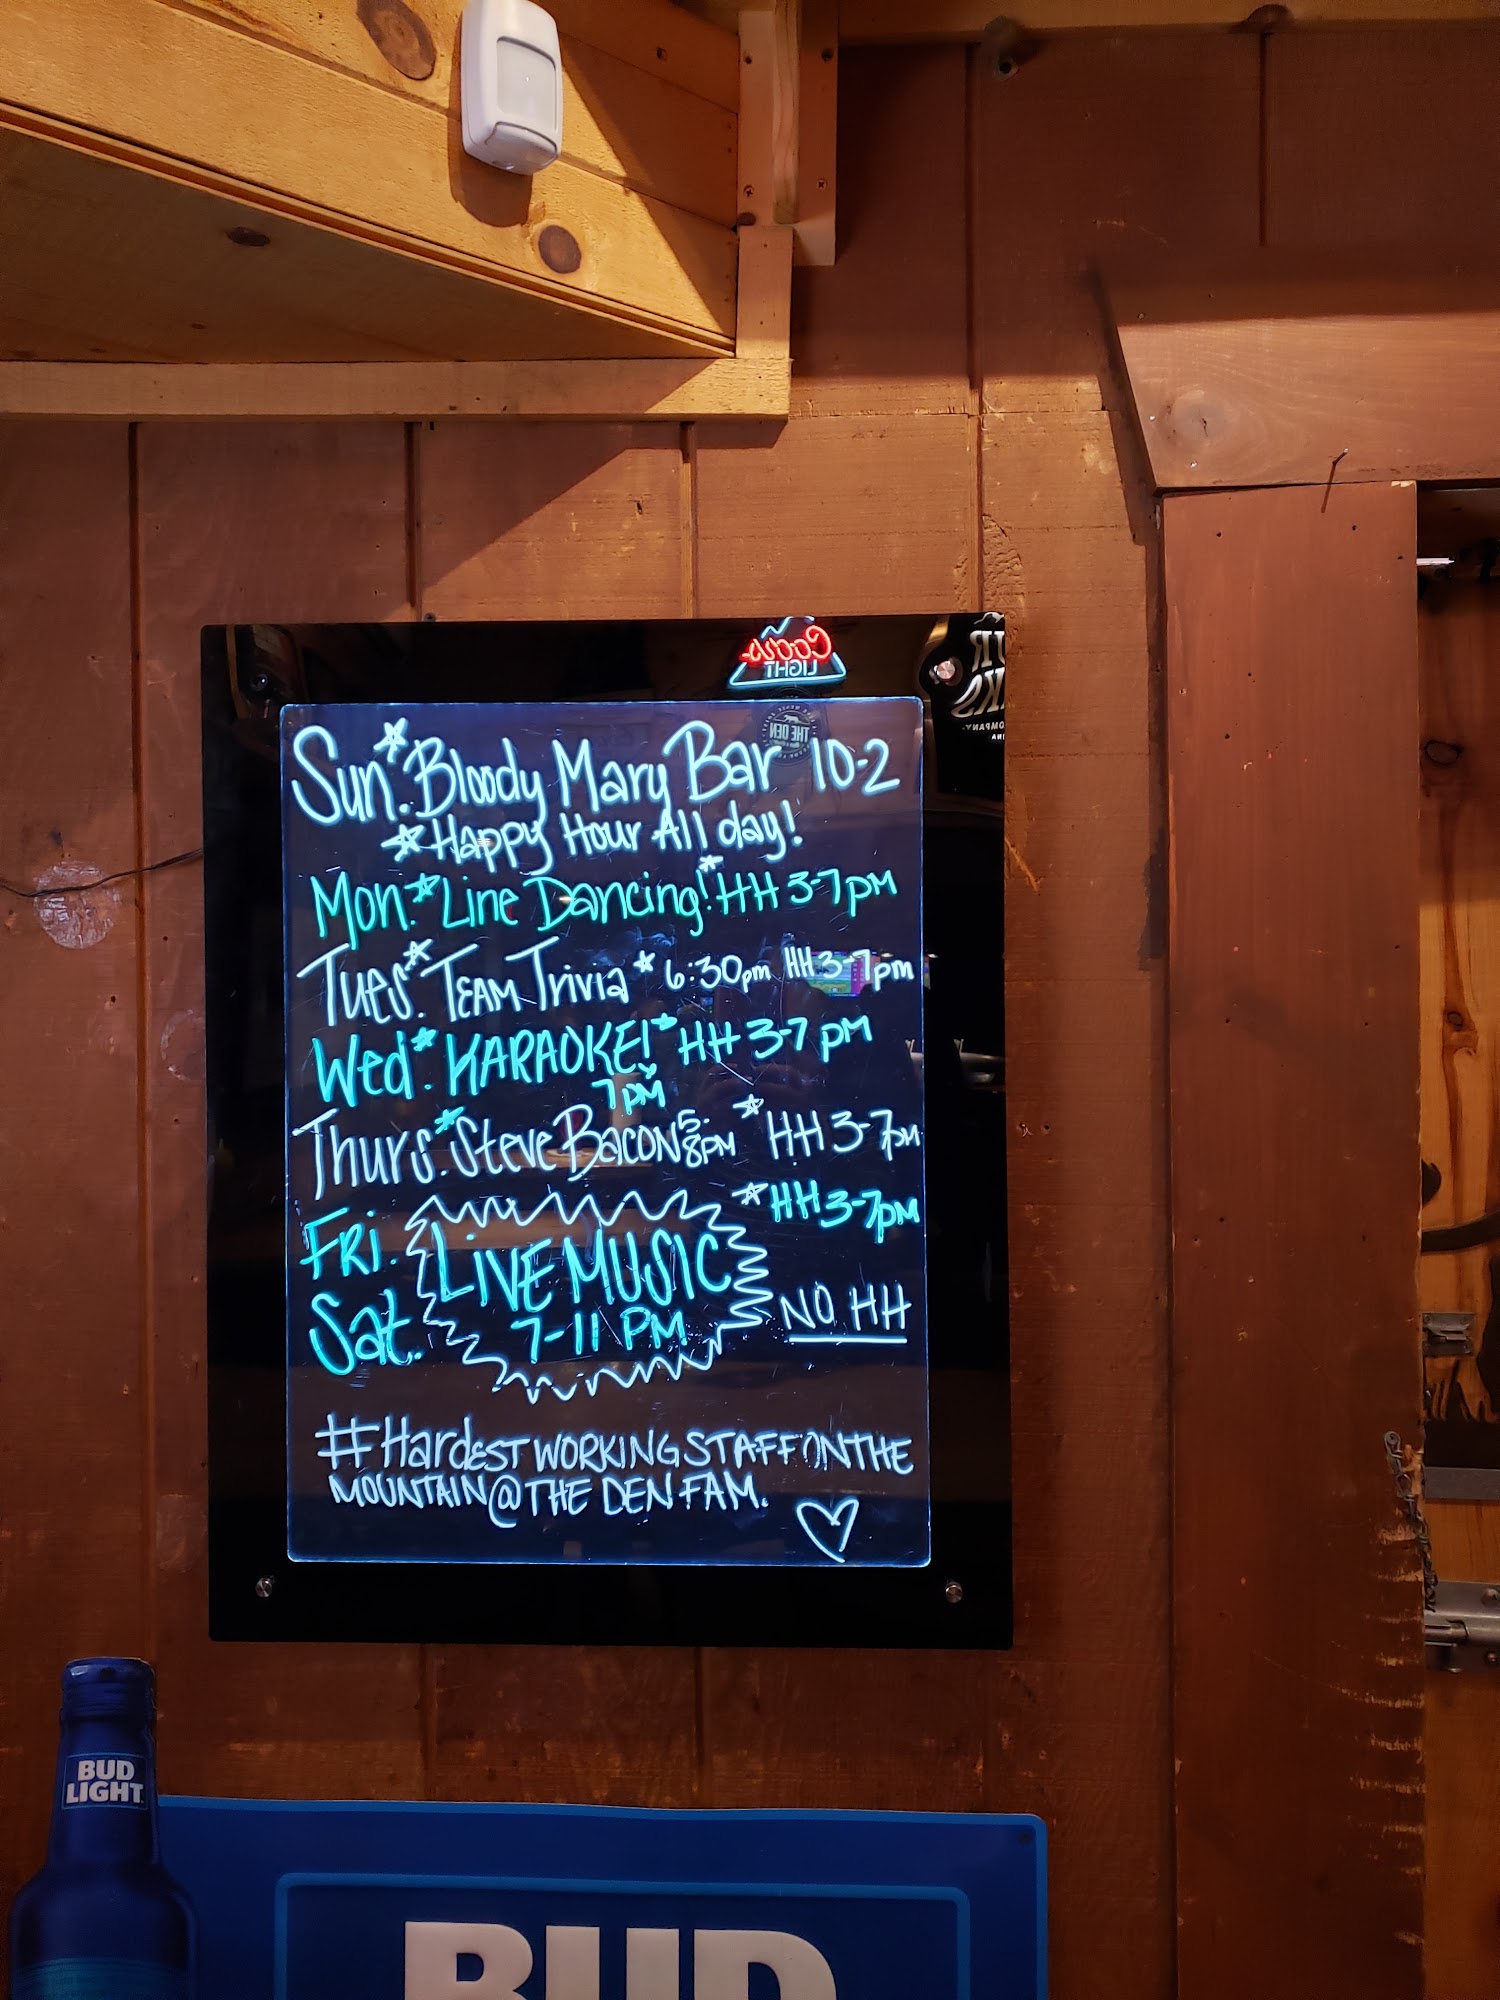 Coors
LIGHT
THE DEN
Sun. Bloody Mary Bar 10-2
Happy Hour All day!
Mon. Line Dancing! HH 3-7pm
Tues. TEAM Trivia * 6:30pm HH 3-7pm
Wed. KARAOKE! HH 3-7pm
7pm
Thurs. Steve Bacon 5-8pm HH 3-7pm
HH 3-7pm
Fri. LIVE MUSIC
Sat. 7-11 PM NO HH
#HardEST WORKING STAFF ON THE
MOUNTAIN@THE DEN FAM.
BUD
LIGHT
BUD